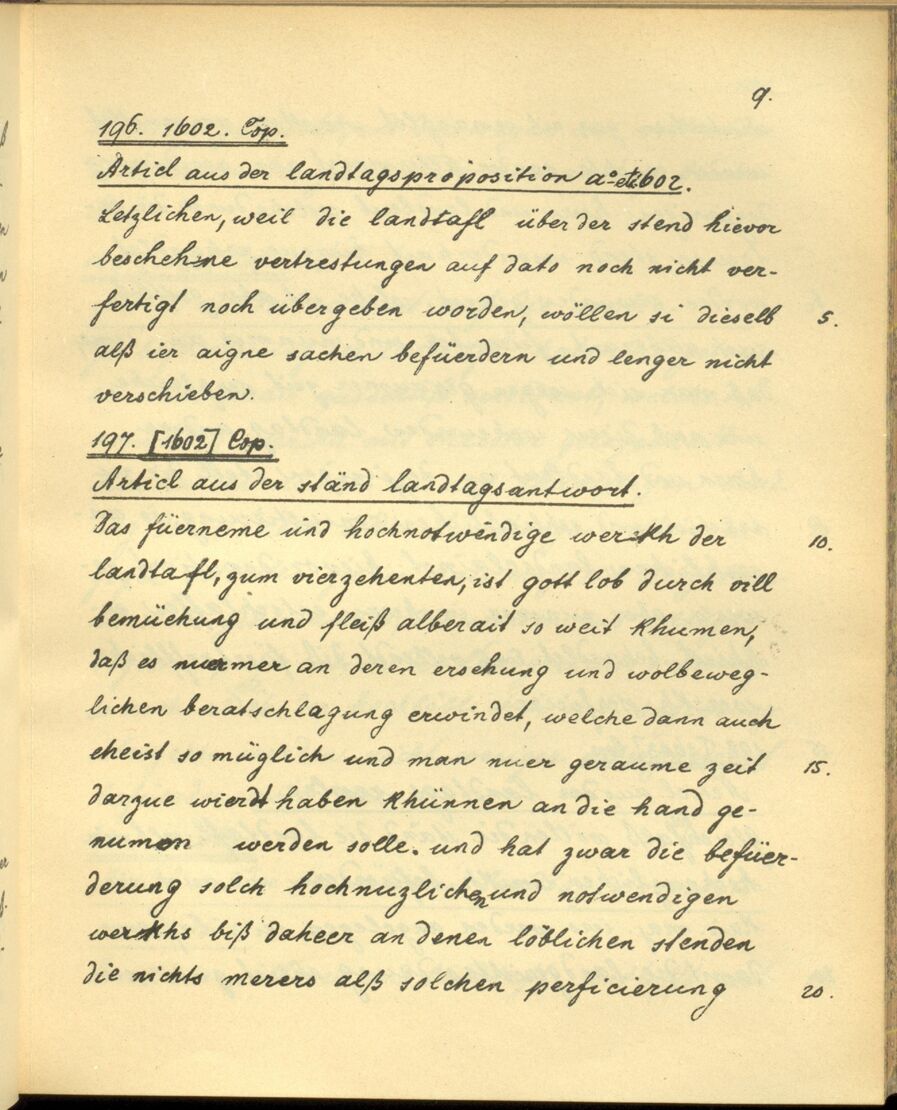 9.
196. 1602. Cop.
Articl aus der landtagsproposition ao 1602.
Letzlichen, weil die landtafl über der stend hievor
beschehne vertrestungen auf dato noch nicht ver-
fertigt noch übergeben worden, wöllen si dieselb 5.
alß ier aigne sachen befüerdern und lenger nicht
verschieben.
197. [1602] Cop.
Articl aus der ständ landtagsantwort.
Das füerneme und hochnotwendige werkh der 10.
landtafl, zum vierzehenten, ist gott lob durch vill
bemüehung und fleiß alberait so weit khumen,
daß es nuermer an deren ersehung und wolbeweg-
lichen beratschlagung erwindet, welche dann auch
eheist so müglich und man nuer geraume zeit 15.
darzue wierdt haben khünnen an die hand ge-
numen werden solle. und hat zwar die befüer-
derung solch hochnuzlichen und notwendigen
werkhs biß daheer an denen löblichen stenden
die nichts merers alß solchen perficierung 20.